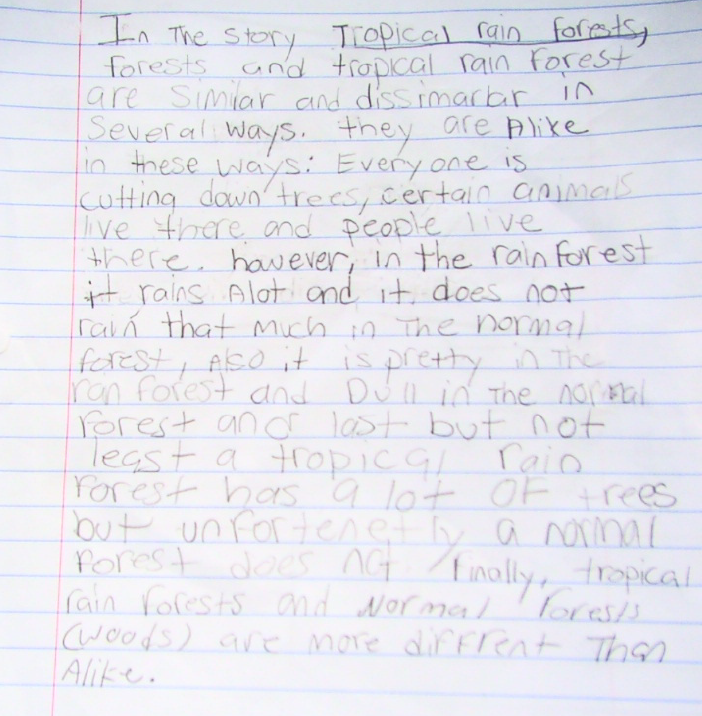 In The Story Tropical rain forests,
forests and tropical rain forest
are Similar and dissimarlar in
Several ways. they are Alike
in these ways: Everyone is
cutting down trees, certain animals
live there and people live
there. however, in the rainforest
it rains Alot and it does not
rain that much in The normal
forest, Also it is pretty in The
ran forest and Dull in The normal
forest and last but not
lest a tropical rain
forest has a lot OF trees
but unfortenetly a normal
forest does not. Finally, tropical
rain forests and Normal forests
(woods) are more diffrent Than
Alike.